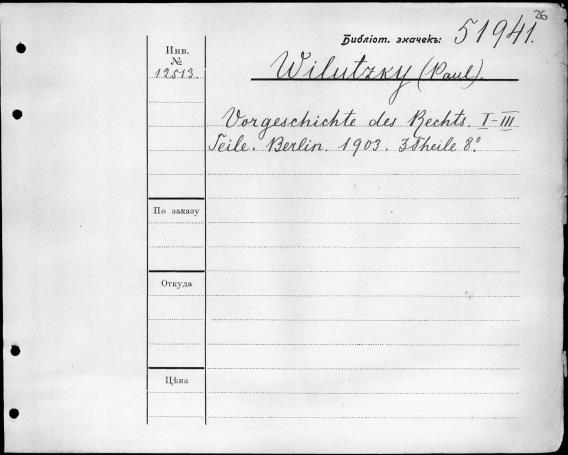 26
Библіот. значекъ: 51941.
Инв.
№
12513.
Wilutzky (Paul).
Vorgeschichte des Rechts. I-III
Teile. Berlin. 1903. 3 Theile 8.º
По заказу
Откуда
Цѣна